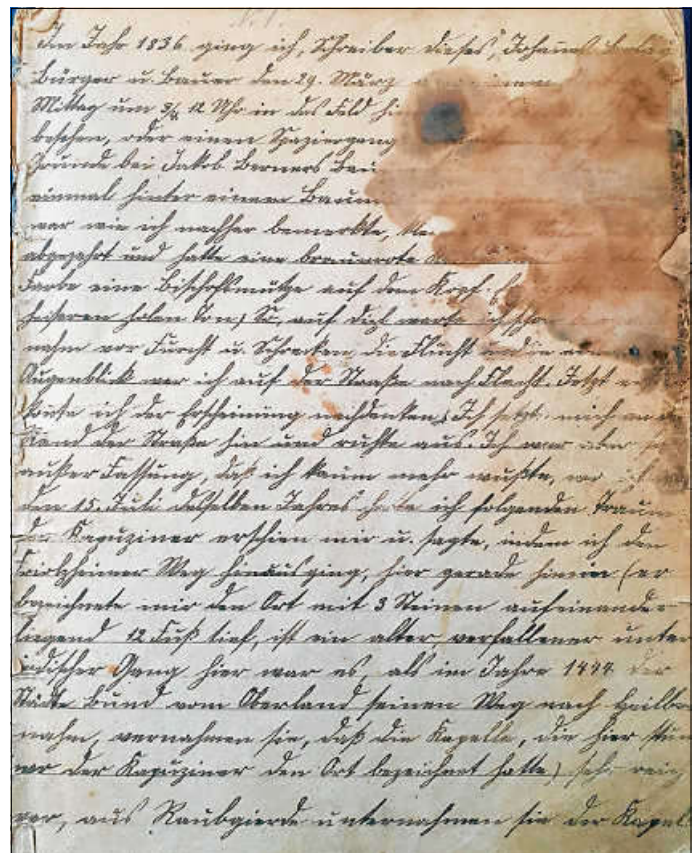 Im Jahr 1836 ging ich, Schreiber dieses, Johannes
Bürger u. Bauer den 29. März
Mittag um 3/4 12 Uhr in das Feld
besehen, oder einen Spaziergang
Grunde bei Jakob Berners
einmal hinter einem Baum
war wie ich nachher bemerkte,
abgezehrt und hatte eine braunrote
Farbe eine Bischofsmütze auf dem Kopf.
heiseren holen Ton; So, auf dich warte ich schon
nahm vor Furcht u. Schrecken die Flucht und in
Augenblick war ich auf der Straße nach Flacht. Jetzt
konte ich der Erscheinung nachdenken; Ich setzt mich an
Rand der Straße hin und ruhte aus. Ich war aber so
außer Fassung, daß ich kaum mehr wußte, wo
den 15. Juli desselben Jahres hatte ich folgenden Traum
der Kapuziner erschien mir u. sagte, indem ich den
Friolzheimer Weg hinausging, hier gerade hinein (er
bezeichnete mir den Ort mit 3 Steinen aufeinander
liegend 12 Fuß tief, ist ein alter verfallener unter
irdischer Gang hier war es, als im Jahre 1444 der
Städte bund vom Oberland seinen Weg nach Heilbr
nahm, vernahmen sie, daß die Kapelle, die hier
wo der Kapuziner den Ort bezeichnet hatte) sehr reich
war, aus Raubgierde unternahmen sie der Kapel